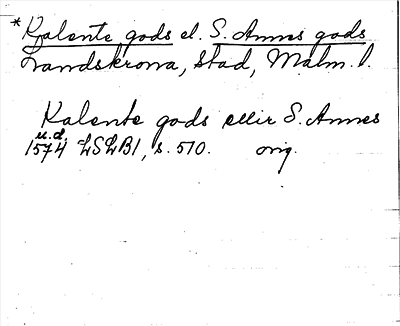 * Kalente gods el. S. Annes gods
Landskrona, stad, Malm. l.
Kalente gods ellir S. Annes
u.d.
1574 LSLB1, s. 510. orig.